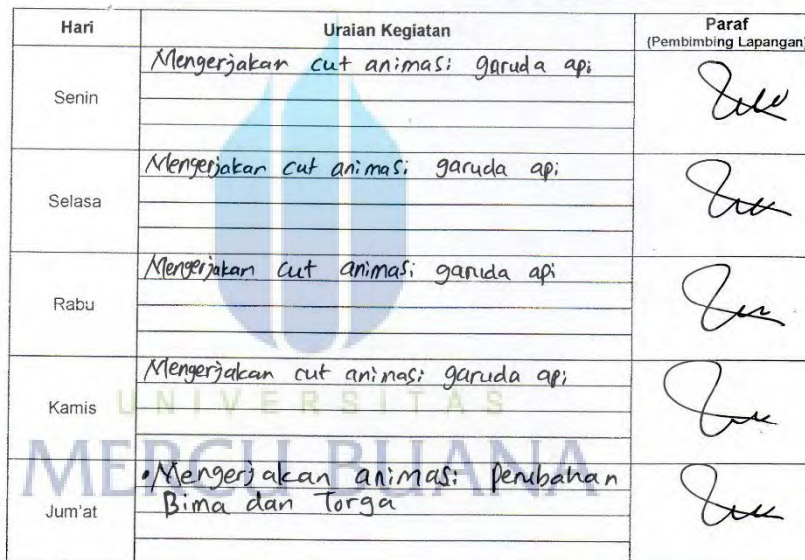 Hari Uraian Kegiatan Paraf
(Pembimbing Lapangan)
Senin Mengerjakan cut animasi garuda api
Selasa Mengerjakan cut animasi garuda api
Rabu Mengerjakan cut animasi garuda api
Kamis Mengerjakan cut animasi garuda api
UNIVERSITAS
MERCU BUANA
Jum'at • Mengerjakan animasi perubahan
Bima dan Torga